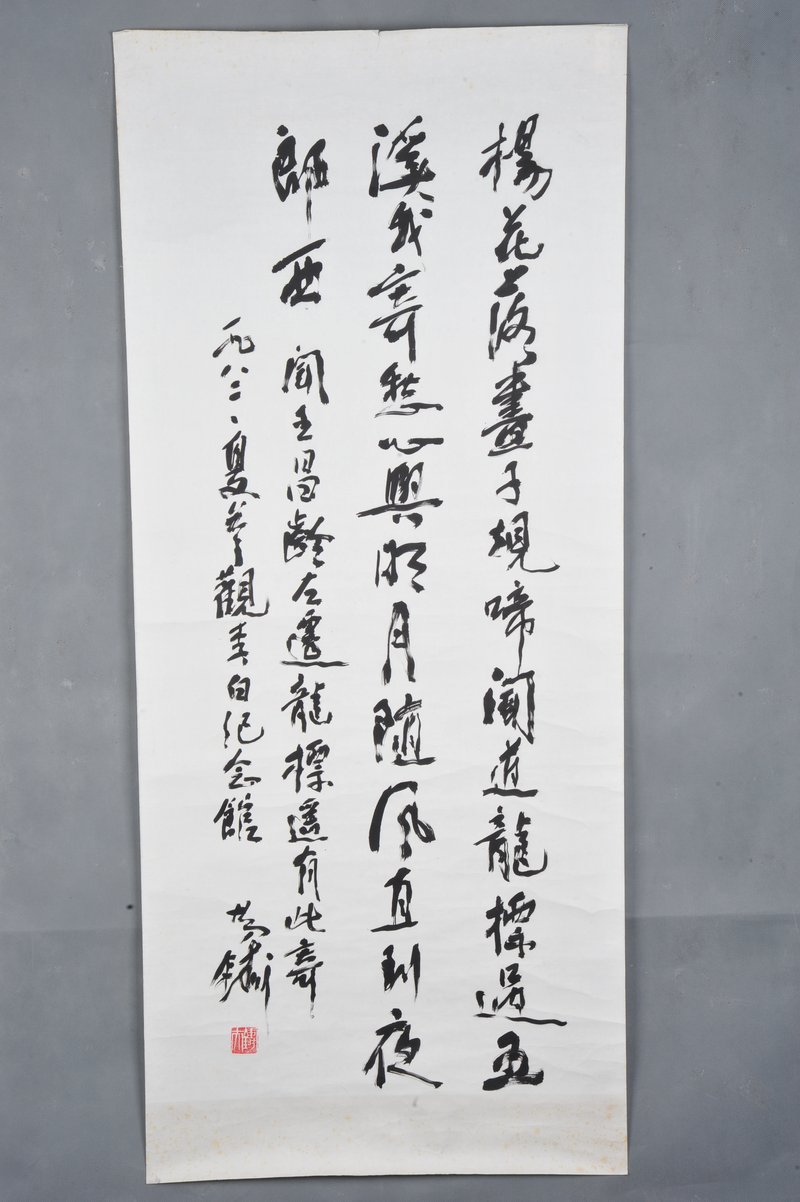 楊花落盡子規啼聞道龍標過五
溪我寄愁心與明月隨風直到夜
郎西 聞王昌齡左遷龍標遙有此寄
一九八二、夏參觀李白紀念館